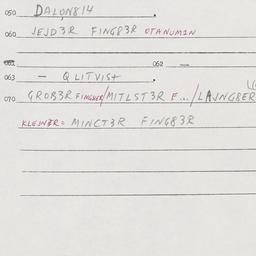 050 DALON814
060 JEJD3R FING83R OTANUM1N
062 —
063 — QLITVIST
070 GROB3R FINGBER/MITLST3R F.../LAJNG8ER
KLEJN3R= MINCT3R FING83R